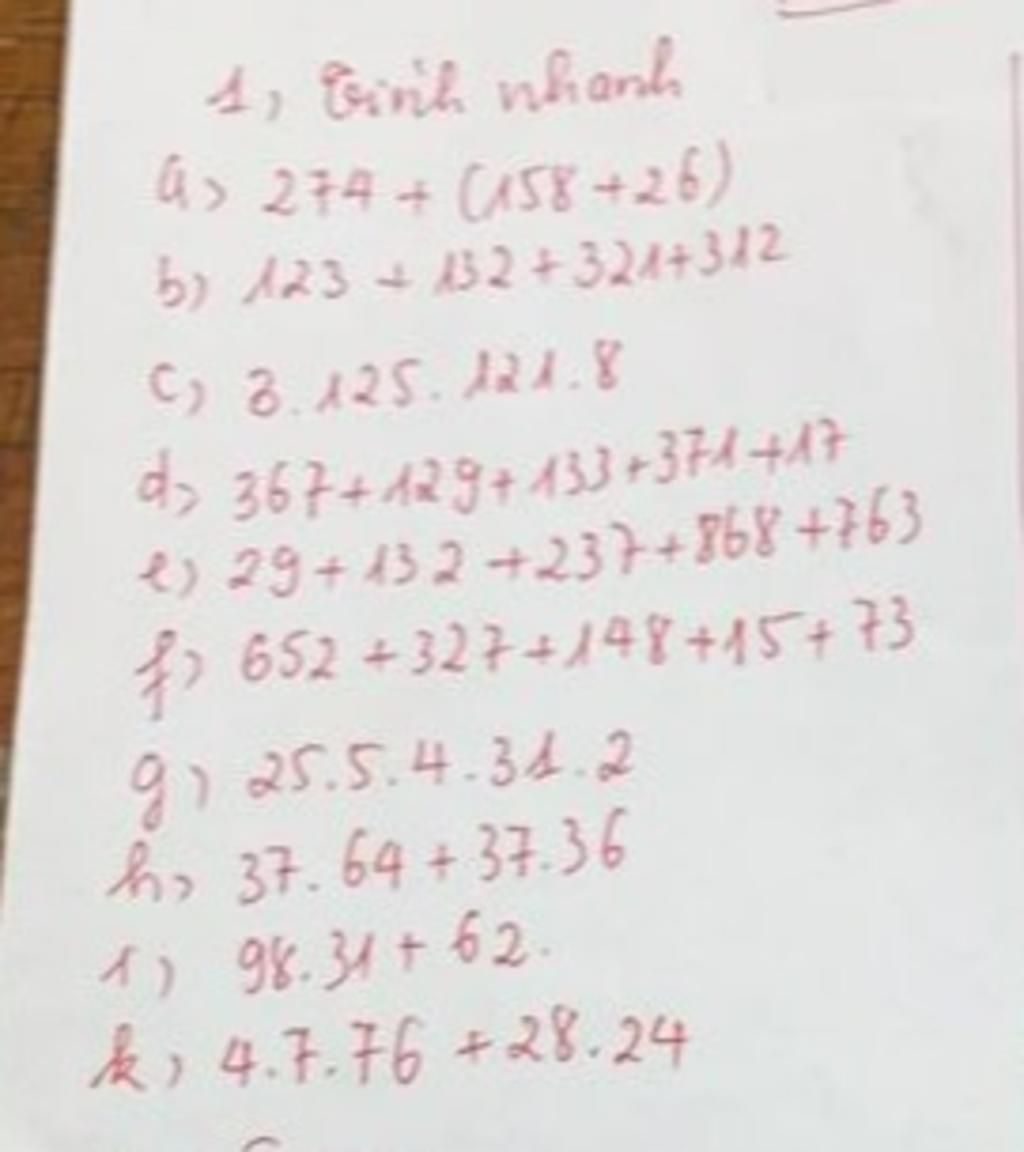 1, Tính nhanh
a) 274 + (158 + 26)
b) 123 + 132 + 321 + 312
c) 3.125.121.8
d) 367 + 129 + 133 + 371 + 17
e) 29 + 132 + 237 + 868 + 763
f) 652 + 327 + 148 + 15 + 73
g) 25.5.4.31.2
h) 37.64 + 37.36
i) 98.31 + 62.
k) 4.7.76 + 28.24